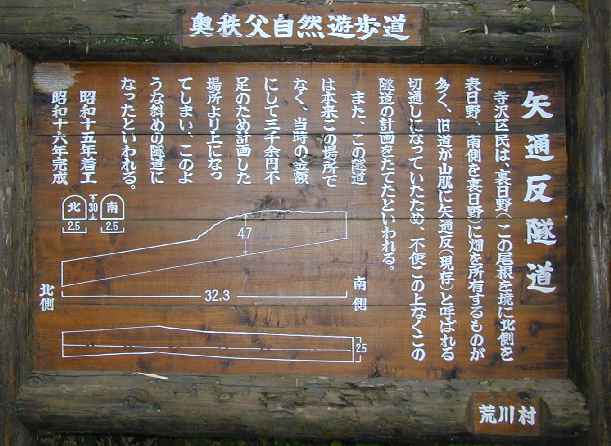 奥秩父自然遊歩道
矢通反隧道
寺沢区民は、裏日野(この尾根を境に北側を
表日野、南側を裏日野)に畑を所有するものが
多く、旧道が山肌に矢通反(現存)と呼ばれる
切通しになっていたため、不便この上なくこの
隧道の計画をたてたといわれる。
また、この隧道
は本来この場所で
なく、当時の金額
にして三千余円不
足のため計画した
場所より上になっ
てしまい、このよ
うな斜めの隧道に
なったといわれる。
昭和十五年着工
昭和十六年完成
北
30
南
2.5
2.5
4.7
北側
32.3
南側
2.5
荒川村